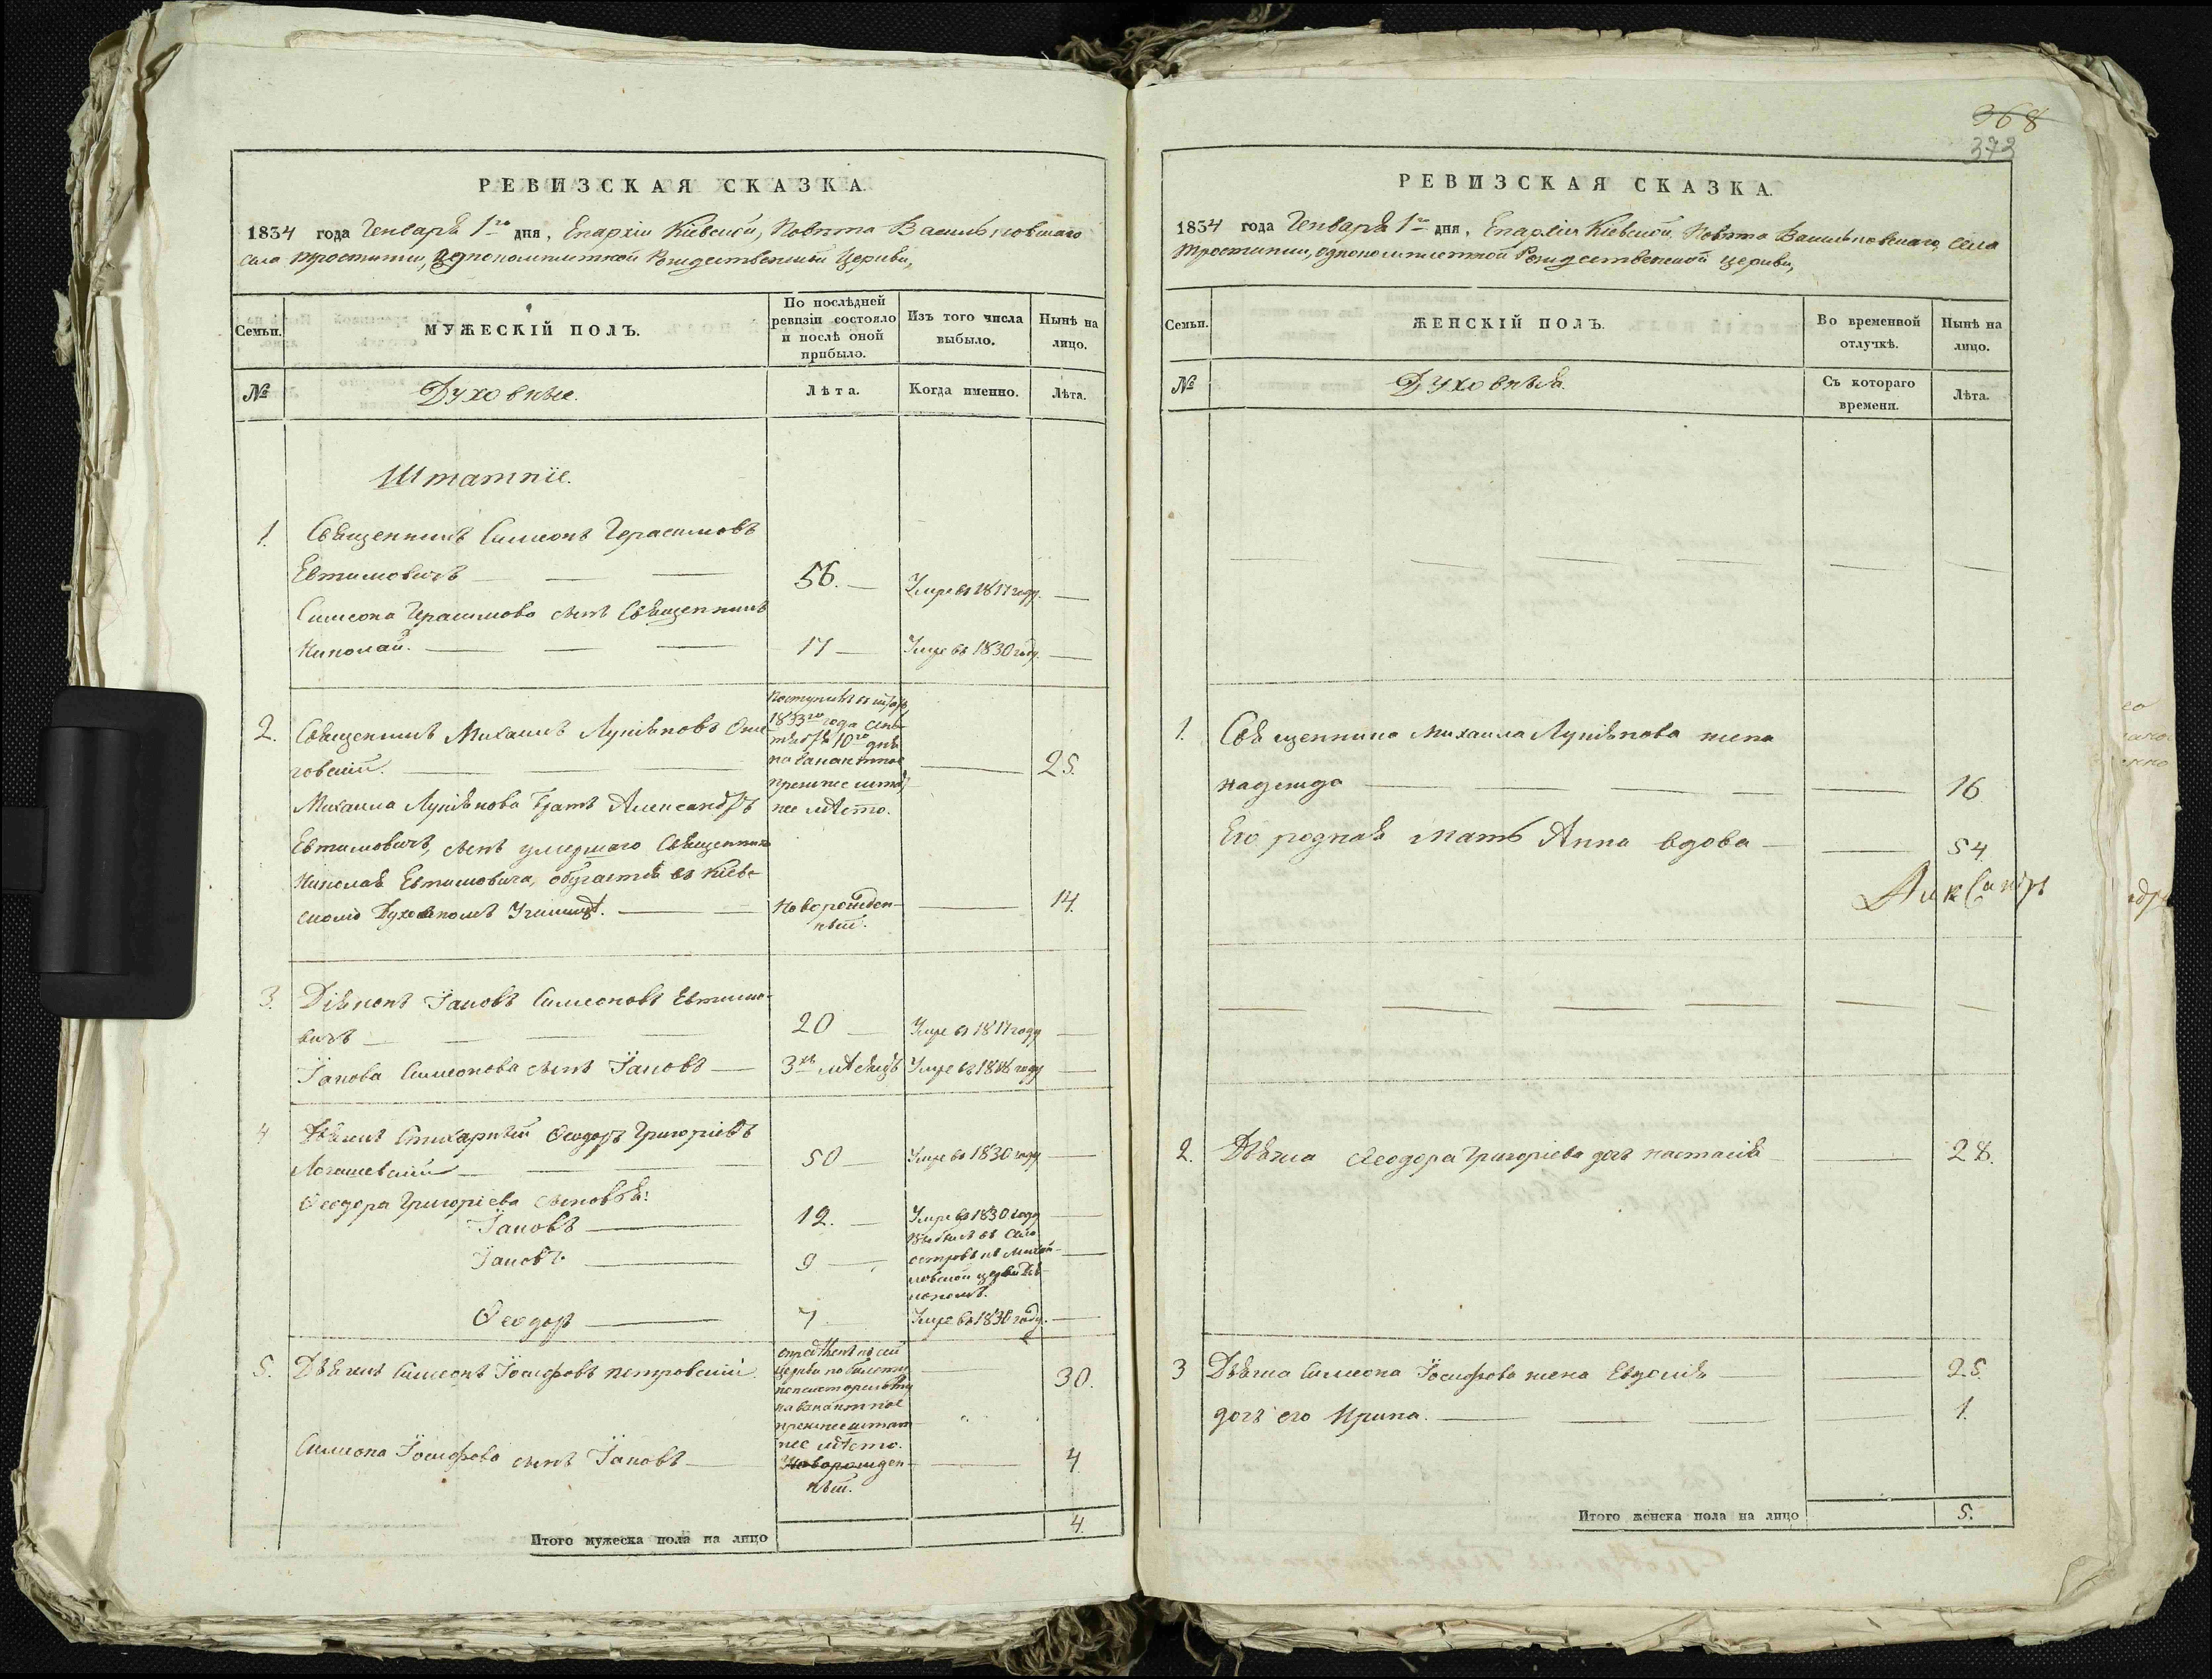 РЕВИЗСКАЯ СКАЗКА.
1834 года Генваря 1го дня, Епархіи Кіевской, Повѣта Васильковскаго
села Тростинки, однокомплектной Рождественской Церкви,
Семьи.
МУЖЕСКІЙ ПОЛЪ.
По послѣдней
ревизіи состояло
и послѣ оной
прибыло.
Изъ того числа
выбыло.
Нынѣ на
лицо.
№
Духовные.
Лѣта.
Когда именно.
Лѣта.
Штатніе.
1. Священникъ Симеонъ Герасимовъ
Евтимовичъ 56. Умре въ 1817 году.
Симеона Герасимова сынъ Священникъ
Николай. 17 Умре въ 1830 году.
Поступилъ
1833го года Сен-
тября 10го дня
на вакантное
прежнее штат-
нее мѣсто.
2. Священникъ Михаилъ Лукіановъ
говскій. 25.
Михаила Лукіанова братъ Александръ
Евтимовичъ, сынъ умершаго Священника
Николая Евтимовича, обучается въ Кіев-
скомъ Духовномъ Училищѣ. Новорожден-
ный. 14.
3. Діяконъ Іаковъ Симеоновъ Евтимо-
вичъ 20 Умре въ 1817 году
Іакова Симеонова сынъ Іаковъ 3хъ мѣсяцъ Умре въ 1818 году
4 Дьячекъ Стихарный Ѳеодоръ Григоріевъ
Логашевскій 50 Умре въ 1830 году
Ѳеодора Григоріева сыновья:
Іаковъ 12. Умре въ 1830 году
Іаковъ. 9 Выбылъ въ Село
островъ къ Михай-
ловской церкви Дія-
кономъ.
Ѳеодоръ 7 Умре въ 1830 году.
5. Дьячекъ Симеонъ Іосифовъ Петровскій. 30.
опредѣленъ къ сей
церкви по билету
консисторскому
на вакантное
прежнее штат
нее мѣсто.
Симеона Іосифова сынъ Іаковъ Новорожден-
ный. 4
Итого мужеска пола на лицо 4.
368
373
РЕВИЗСКАЯ СКАЗКА.
1834 года Генваря 1го дня, Епархіи Кіевской, Повѣта Васильковскаго, Села
Тростинки, однокомплектной Рождественской церкви,
Семьи.
ЖЕНСКІЙ ПОЛЪ.
Во временной
отлучкѣ.
Нынѣ на
лицо.
№
Духовныя.
Съ котораго
времени.
Лѣта.
1. Священника Михаила Лукіянова жена
Надежда 16
Его родная мать Анна вдова 54
Александръ
2. Дьячка Ѳеодора Григоріева дочь Настасія 28.
3 Дьячка Симеона Іосифова жена Евдокія 25.
дочь его Ирина. 1.
Итого женска пола на лицо 5.